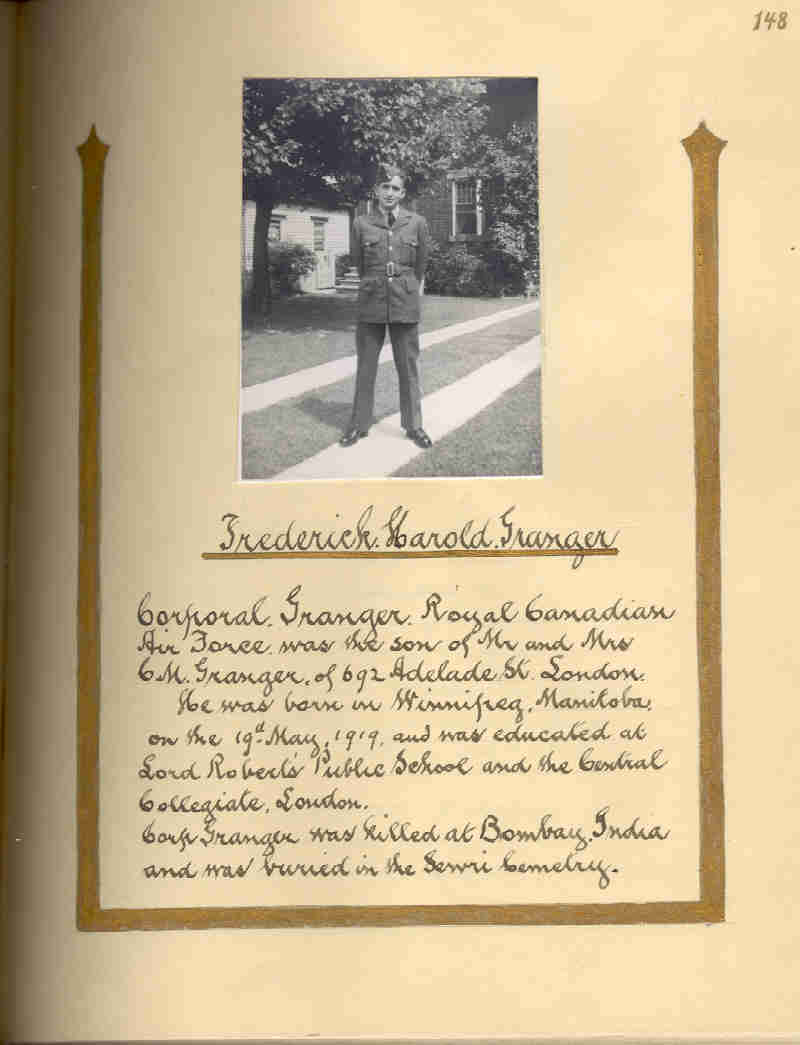 148
Frederick. Harold. Granger
Corporal. Granger. Royal Canadian
Air Force. was the son of Mr and Mrs
C.M. Granger, of 692 Adelade St. London.
He was born in Winnipeg, Manitoba,
on the 19th May, 1919, and was educated at
Lord Robert's Public School and the Central
Collegiate, London.
Corp Granger was killed at Bombay, India
and was buried in the Sewri Cemetry.